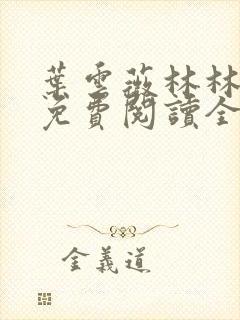 葉雲薇林林
免費閱讀全
金義道